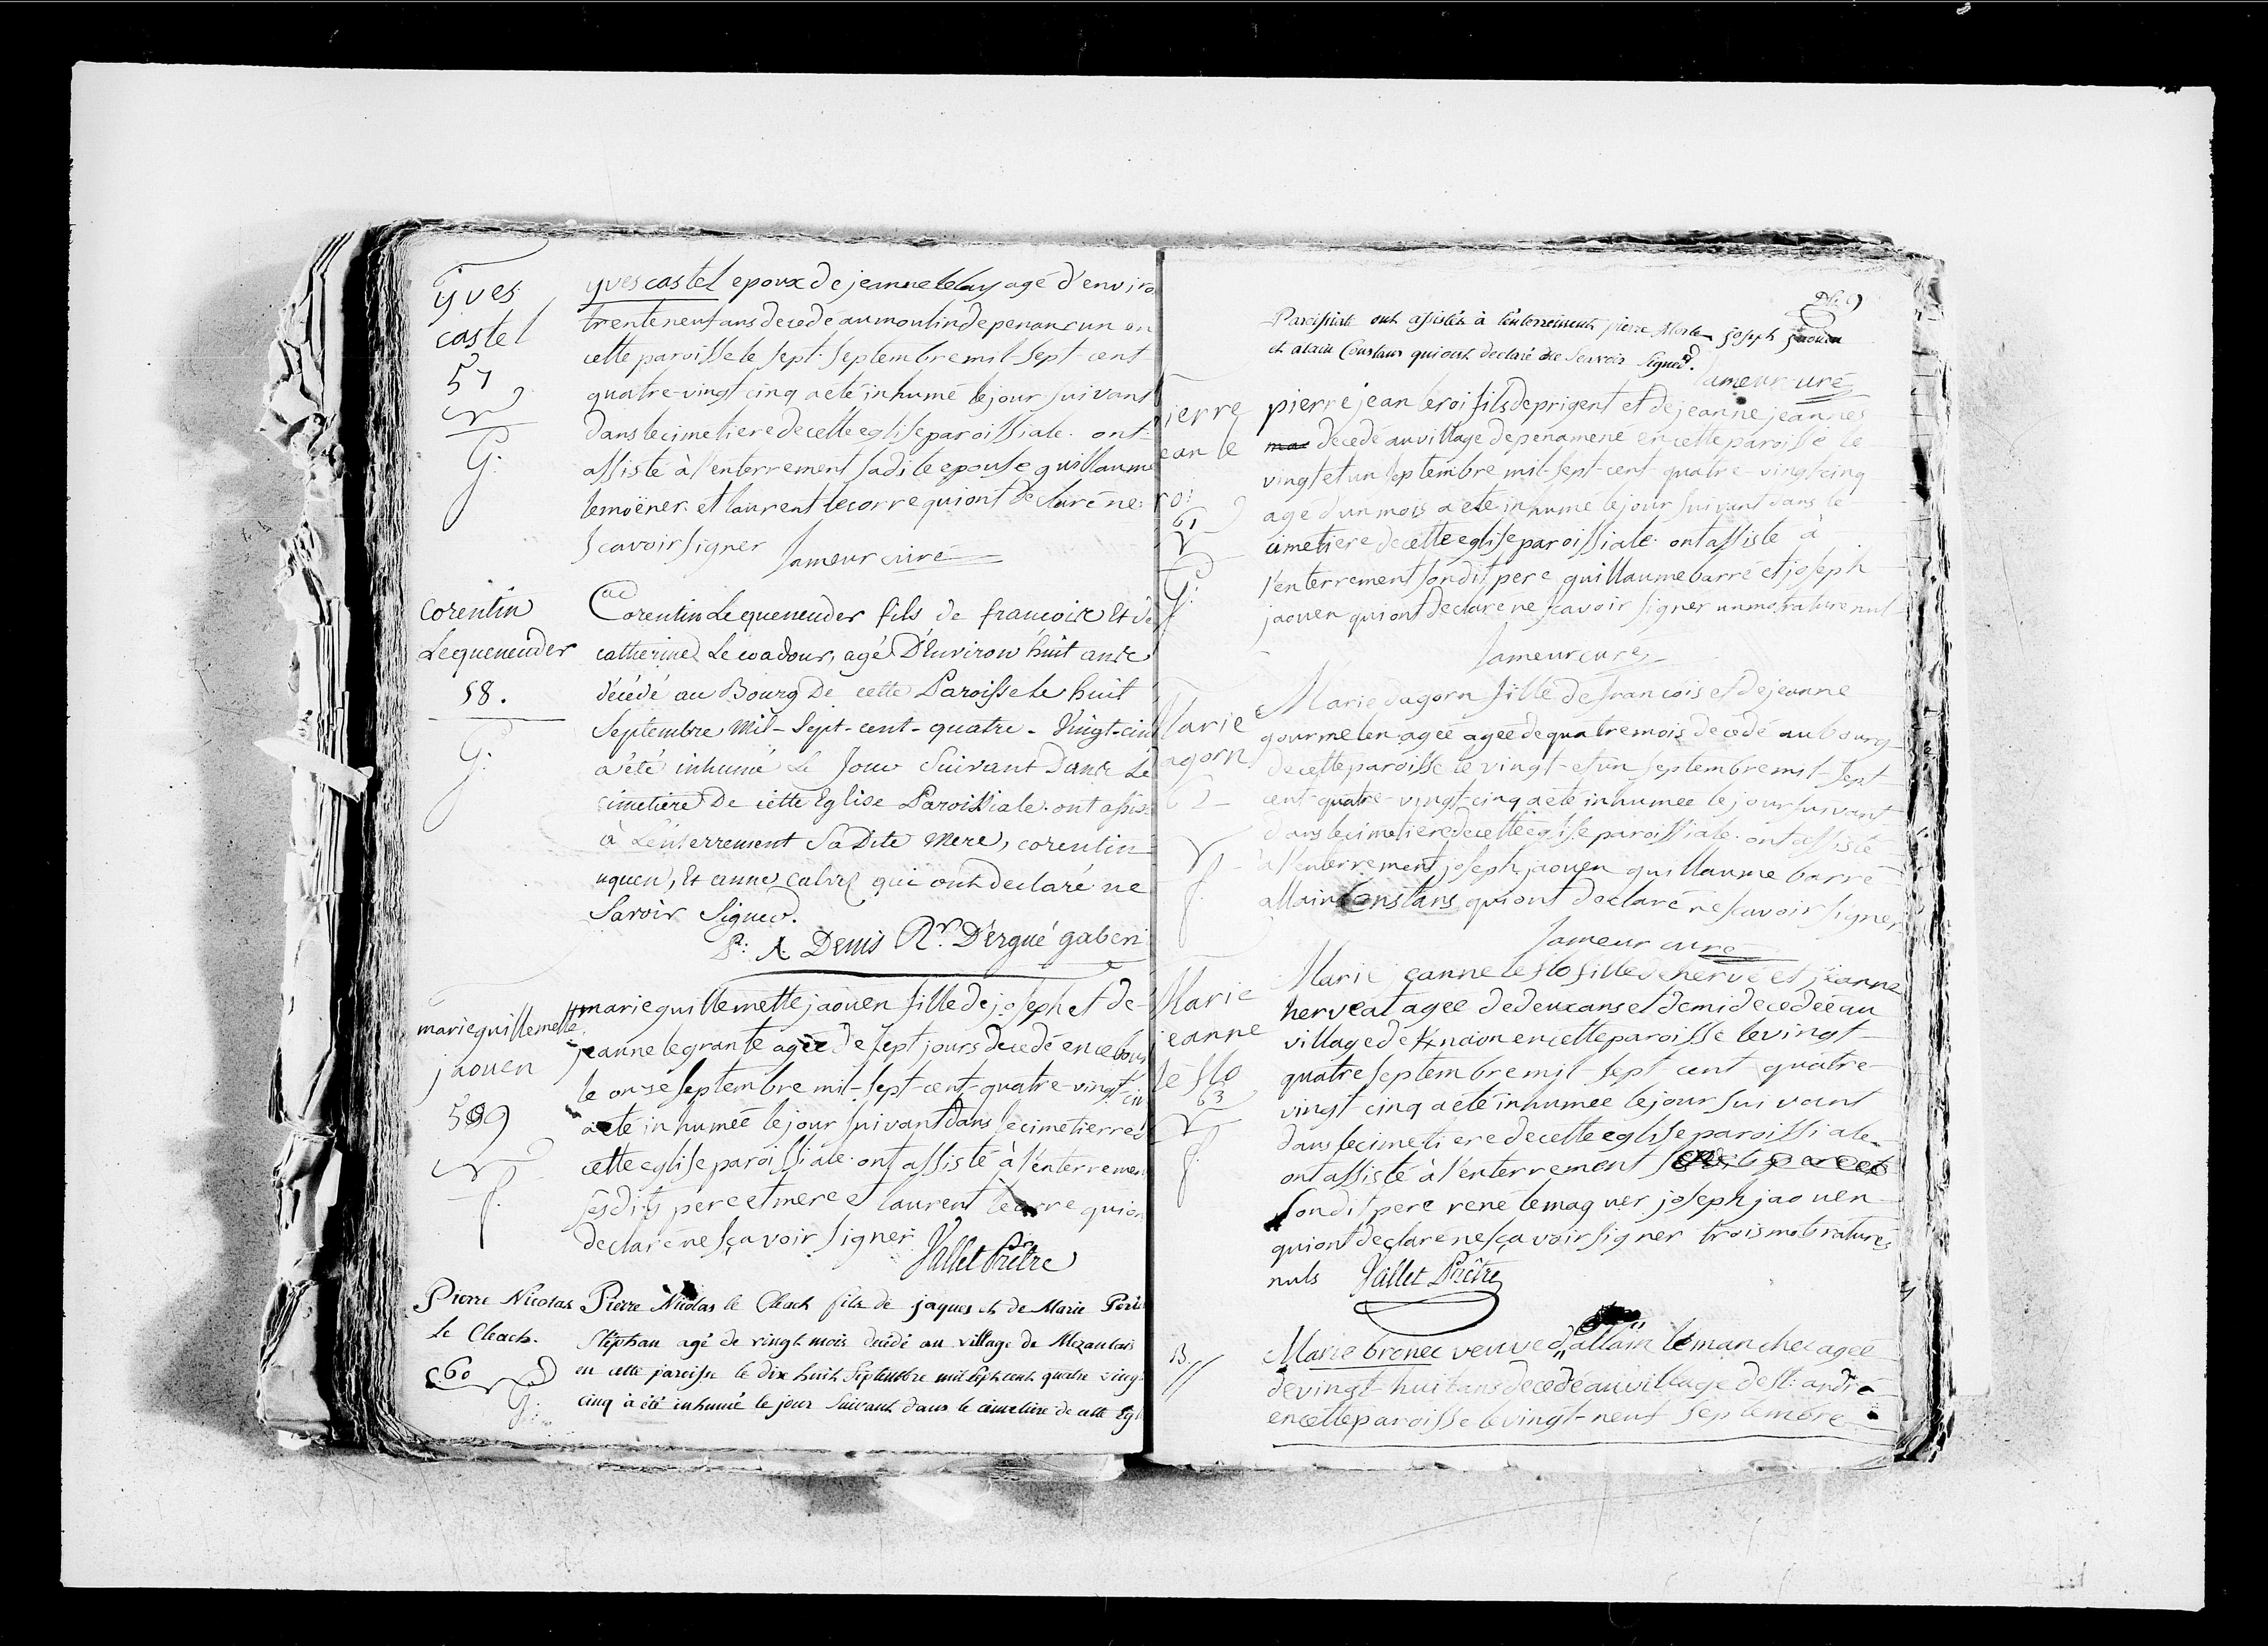 yves
castel
57
G.
yves castel epoux de jeanne lelay agé d'enviro
trente neuf ans decede au moulin de penancrun en
cette paroisse le sept septembre mil-sept cent
quatre-vingt cinq a été inhumé le jour suivant
dans le cimetiere de cette eglise paroissiale. ont
assisté à l'enterrement sadite epouse guillaume
lemoëner et laurent lecorre qui ont declaré ne
scavoir signer
Jameur curé
corentin
Lequeneuder
58.
G.
Corentin Lequeneuder fils de francois Et de
catherine Le coadour, agé D'Environ huit ans
décédé au Bourg De cette Paroisse le huit
Septembre Mil-Sept-cent-quatre-Vingt-cin
a été inhumé Le Jour Suivant Dans Le
cimetiere De cette Eglise Paroissiale. ont assis
à L'enterrement Sa Dite Mere, corentin
uguen, Et anne calvez qui ont declaré ne
Savoir Signer.
A. Denis Rr. D'ergué gaberi
marie guillemette
jaouen
59
f.
marie guillemette jaouen fille de joseph et de
jeanne legrante agée de sept jours decedé en ce bour
le onze septembre mil-sept-cent-quatre-vingt cin
a été inhumée le jour suivant dans le cimetierre d
cette eglise paroissiale. ont assisté à l'enterremen
sesdits père et mere et laurent lecorre qui on
declaré ne sçavoir signer
Vallet Prêtre
Pierre Nicolas
le Cleach.
60
G.
Pierre Nicolas le Cleach fils de jaques et de Marie
Stéphan agé de vingt mois decédé au village de Mezanlais
en cette paroisse le dix huit Septembre mil sept cent quatre ving
cinq à été inhumé le jour Suivant dans le cimetiere de cette Egl
Paroissiale ont assistés à l'enterrement pierre joseph jaouen
et alain Constans qui ont declaré ne Scavoir Signer.
Jameur curé
ierre
ean le
roi
61
G.
pierre jean le roi fils de prigent et de jeanne jeannes
decedé au village de penamené en cette paroisse le
vingt et un septembre mil-sept-cent-quatre-vingt-cinq
agé d'un mois a été inhumé le jour suivant dans le
cimetiere de cette eglise paroissiale. ont assisté à
l'enterrement sondit pere guillaume barré et joseph
jaouen qui ont declaré ne scavoir signer un mot raturé nul
Jameur curé
Marie
agorn
62
f.
Marie dagorn fille de francois et de jeanne
gourmelen agée agée de quatre mois decedé au bourg
de cette paroisse le vingt-et un septembre mil-sept
cent-quatre-vingt-cinq a été inhumée le jour suivant
dans le cimetiere de cette eglise paroissiale. ont assisté
à l'enterrement joseph jaouen guillaume barré
allain Constans qui ont declaré ne scavoir signer
Jameur curé
Marie
jeanne
le flo
63
f.
Marie jeanne le flo fille de hervé et jeanne
herveat agée de deux ans et demi decedée au
village de Knaon en cette paroisse le vingt-
quatre septembre mil sept cent quatre
vingt cinq a été inhumée le jour suivant
dans le cimetiere de cette eglise paroissiale
ont assisté à l'enterrement
sondit pere rené le maguer joseph jaouen
qui ont declaré ne sçavoir signer trois mots raturés
nuls Vallet Prêtre
B.
Marie brenec veuve d'allain le manchec agée
de vingt-huit ans decedé au village de st. andré
en cette paroisse le vingt-neuf septembre